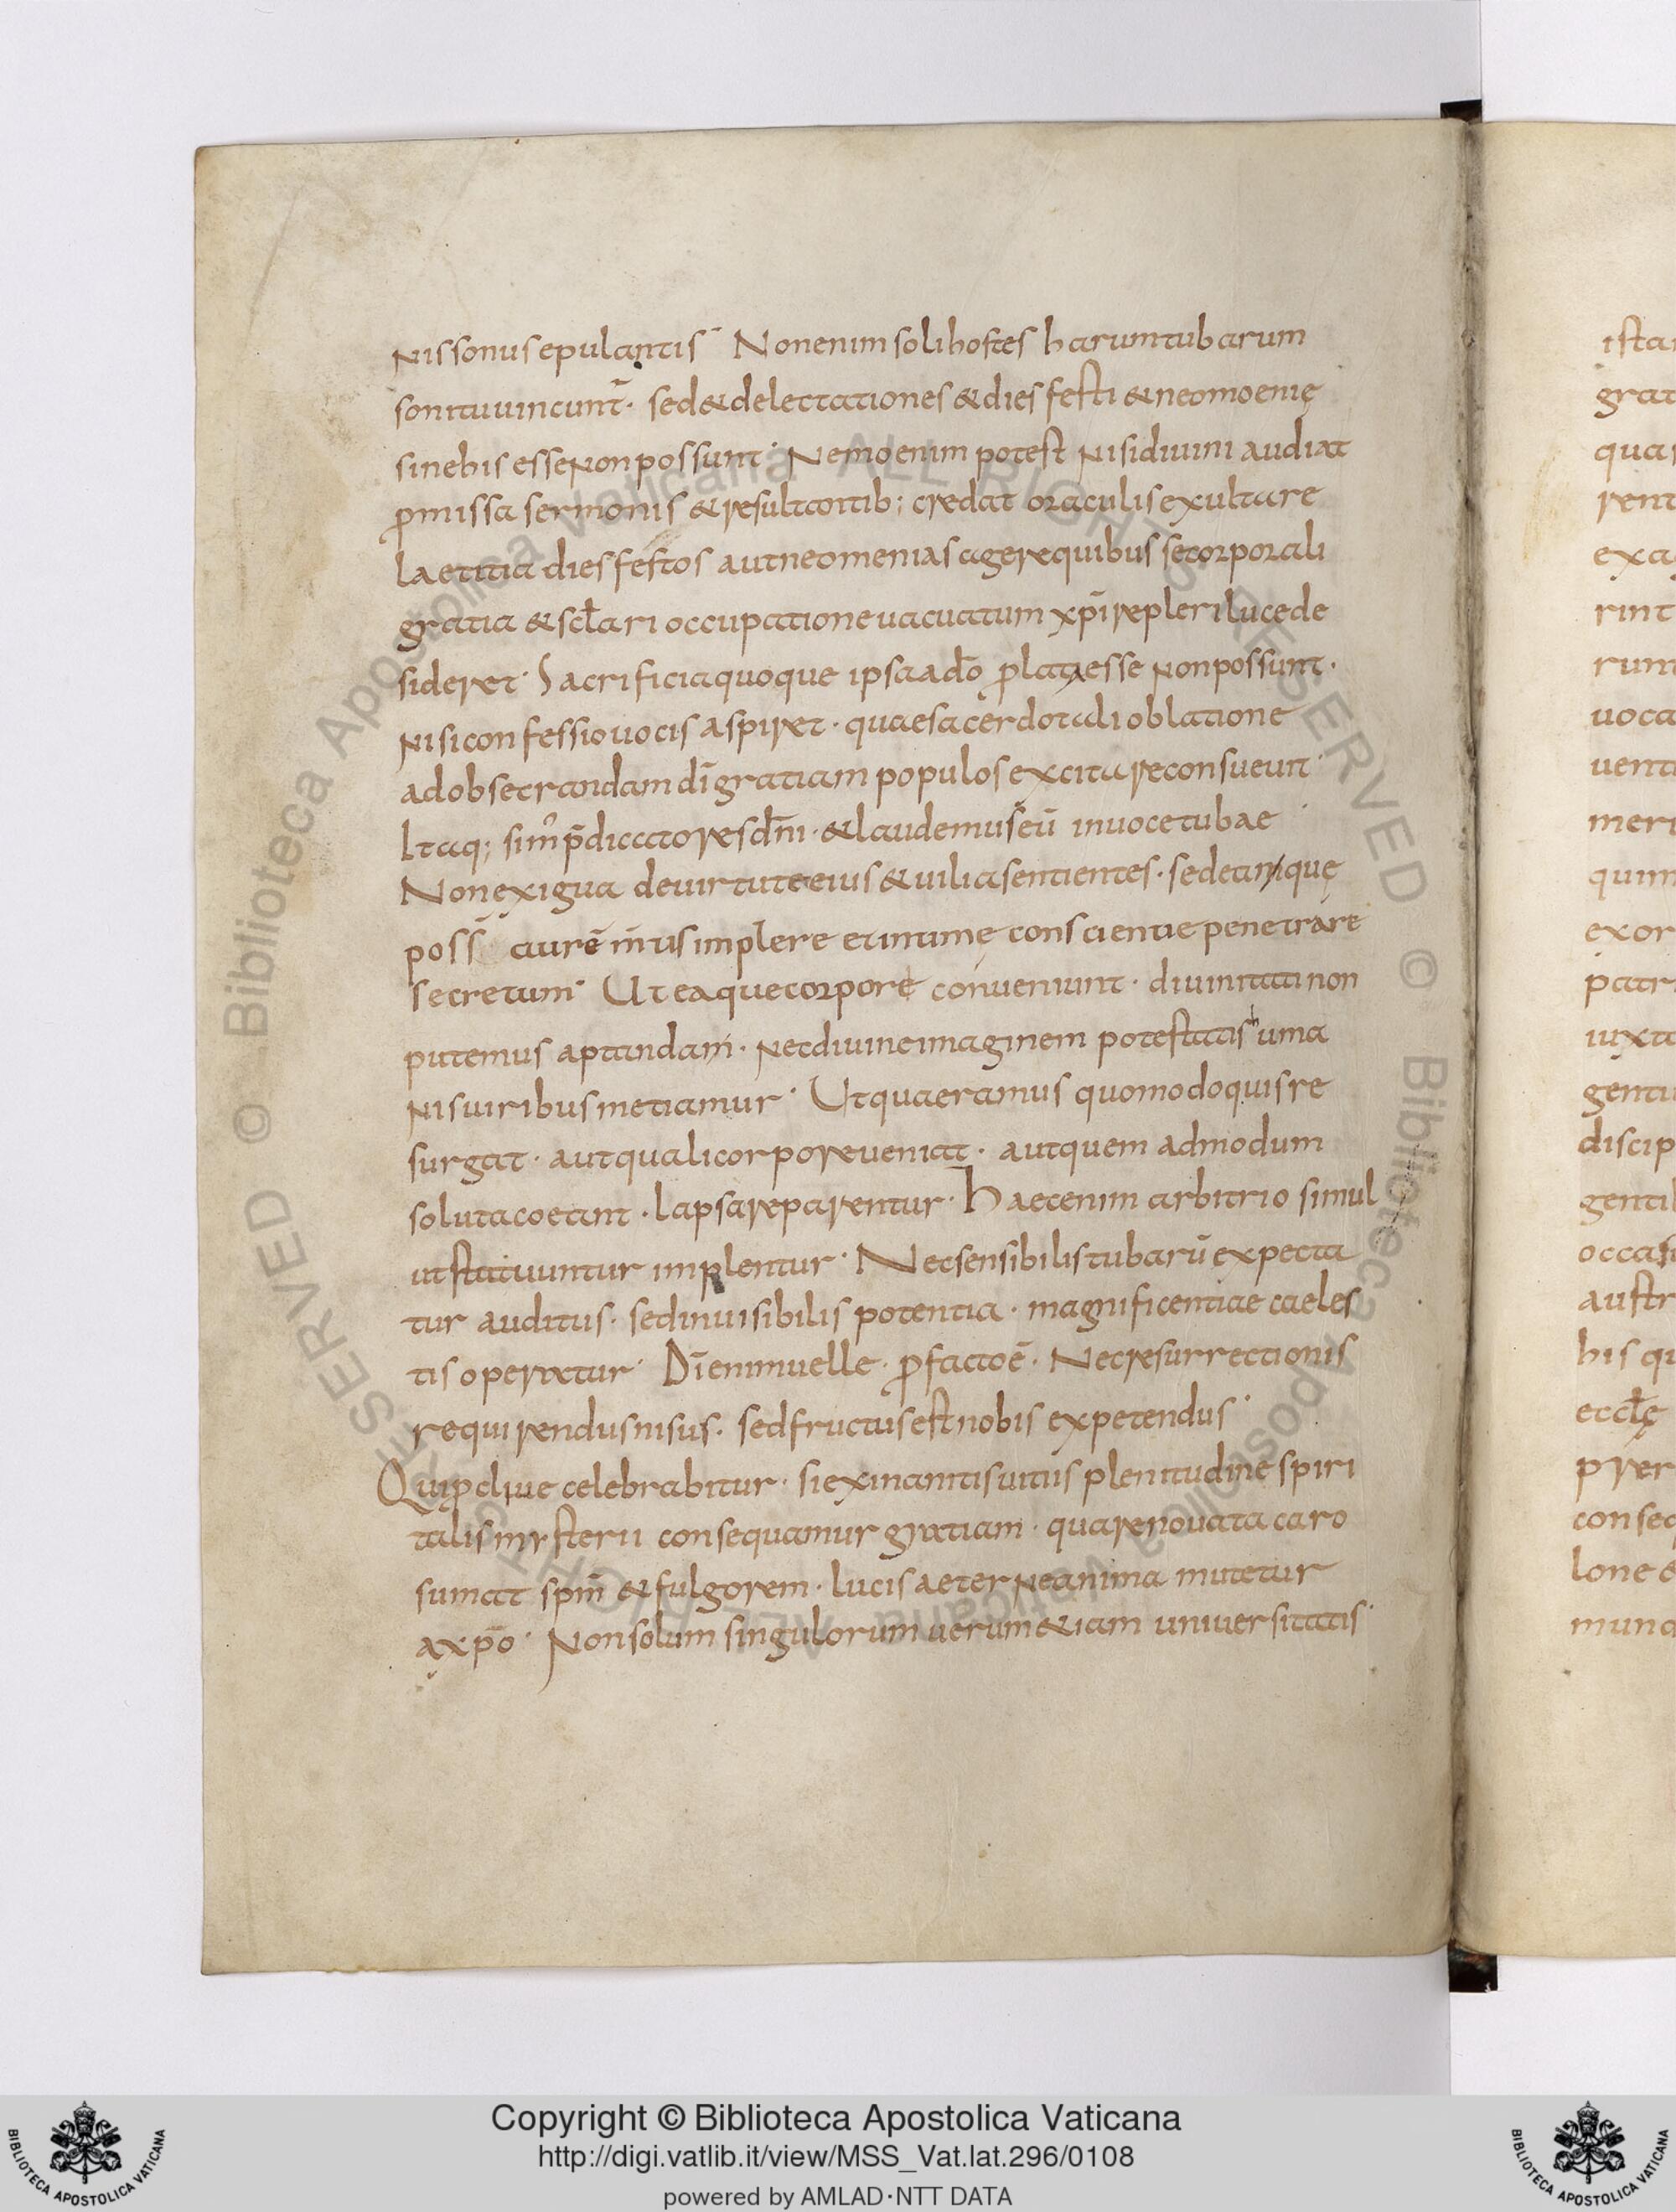 nissonusepulantis Nonenimsolihostes harumtubarum
sonituuincunt̄· sed&delectationes &dies festi &neomoenię
sinehis essenonpossunt· Nemoenim potest nisidiuini audiat
p̄missa sermonis &resultantib; credat oraculisexultare
laetitia diesfestos autneomenias agerequibus secorporali
gratia &scl̄ari occupationeuacuatum xp̄irepleri lucede
sideret· Sacrificiaquoque ipsaad̄o p̄lataesse nonpossunt·
nisiconfessiouocis aspiret· quaesacerdotali oblatione
adobsecrandam dī gratiam populosexcitareconsueuit·
Itaq; simꝰp̄dicatoresdn̄i· &laudemuseū inuocetubae
Nonexigua deuirtuteeius &uiliasentientes· sedeanque
poss aurē m̄tisimplere etintimę conscientiepenetrare
secretum· Uteaquecorpore conueniunt· diuinitatinon
putemus aptandam· necdiuineimaginem potestatis huma
nisuiribusmetiamur· Utquaeramus quomodoquisre
surgat· autqualicorporeueniat· autquem admodum
solutacoeant· lapsareparentur· Haecenim arbitrio simul
utstatuuntur implentur· Necsensibilistubarūexpecta
tur auditus· sedinuisibilis potentia· magnificentiae caeles
tisoperatur· Dīenimuelle· p̄factoē· Necresurrectionis
requirendusnisus· sedfructusestnobis expetendus·
Quip̄cliue celebrabitur· siexinanitisuitiis plenitudine spiri
talismysterii consequamur gratiam· quarenouata caro
sumat spm̄ &fulgorem· lucisaeterneanima mutetur
axp̄o· Nonsolum singulorum uerum&iam uniuersitatis·
ista
grat
qua
rent
exa
rint
rum
uoca
uent
meri
quim
exor
patr
iuxta
genti
discip
gentil
occas
austr
his qu
eccl̄ę
prer
conseq
lone
mund
© Biblioteca Apostolica Vaticana ALL RIGHTS RESERVED
Copyright © Biblioteca Apostolica Vaticana
http://digi.vatlib.it/view/MSS_Vat.lat.296/0108
powered by AMLAD·NTT DATA
BIBLIOTECA APOSTOLICA VATICANA
BIBLIOTECA APOSTOLICA VATICANA